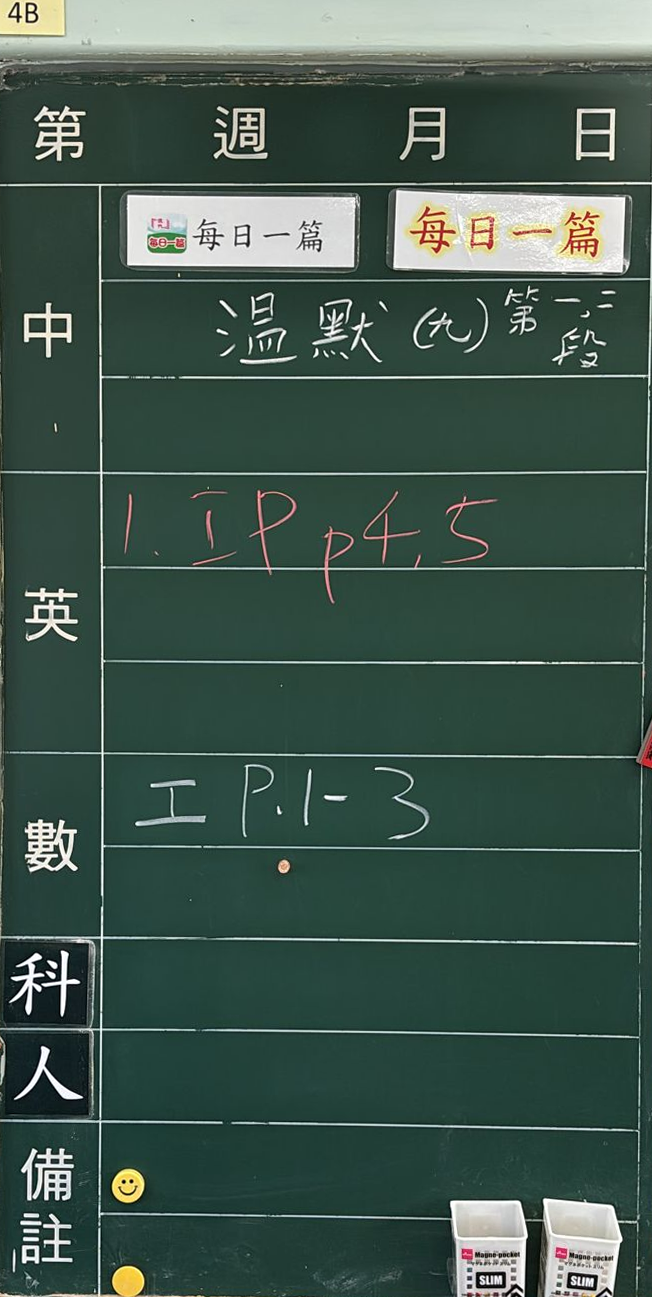 4B
第 週 月 日
中
每日一篇 每日一篇
每日一篇
溫默(九)第一,二段
英
1. 工P p4,5
數
工 P.1-3
科
人
備註
Magno-pocket
SLIM
Magno-pocket
SLIM